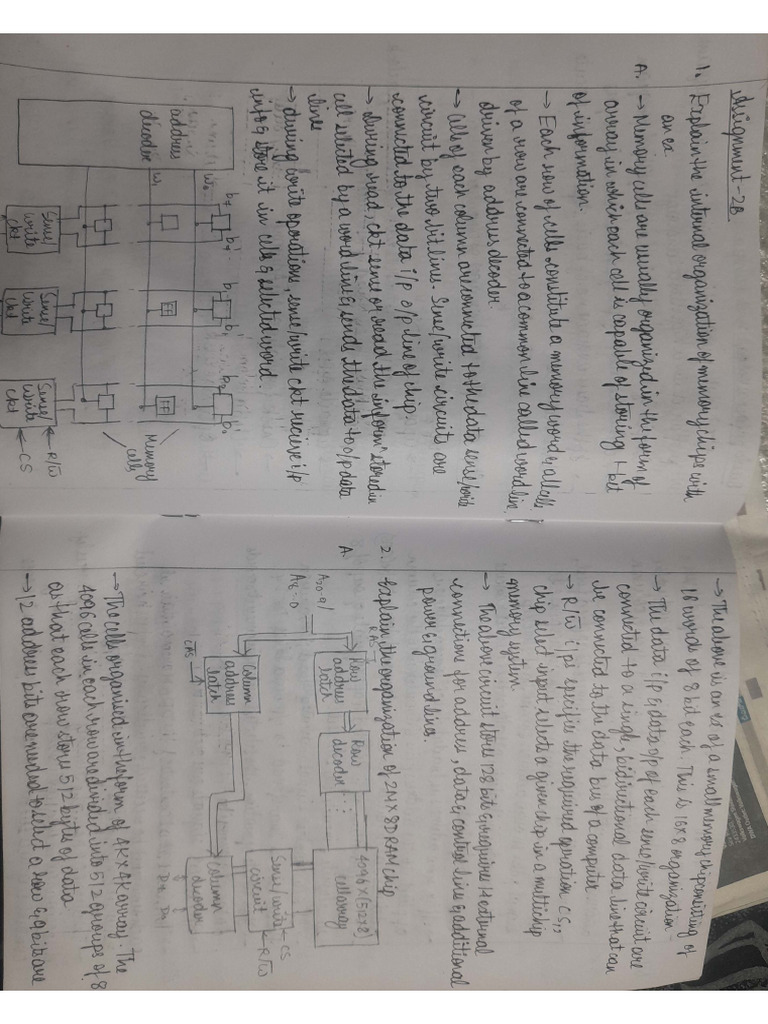 Assignment-2B
1. Explain the internal organization of memory chips with
an ex
A. → Memory cell are usually organized in the form of
array in which each cell is capable of storing 1-bit
of information.
→ Each row of cells constitute a memory word & all cells
of a row are connected to a common line called word line
driven by address decoder.
→ Cells of each column are connected to the data sense/write
circuit by two bit lines. Sense/write circuits are
connected to the data i/p o/p line of chip.
→ during read, ckt sense or read the informn stored in
cell selected by a word line & sends the data to o/p data
lines
→ during write operations sense/write ckt recieve i/p
info & store it in cells & selected word.
b7 b7' b1 b1' b0'
W0
W1
address
decoder
FF FF
Memory
cells
Sense/
write
ckt
Sense/
write
ckt
Sense/
write
ckt
← R/W̅
← CS
→ The above is an ex of a small memory chip consisting of
16 words of 8 bit each. This is 16x8 organization
→ The data i/p & data o/p of each sense/write circuit are
connected to a single, bidirectional data line that can
be connected to the data bus of a computer
→ R/W̅ i/ps specifies the required operation CS,
chip select input selects a given chip in a multichip
memory system.
→ The above circuit stores 128 bits & requires 14 external
connections for address, data & control lines & additional
power & ground lines.
2. Explain the organization of 2M x 8 DRAM chip
A.
RAS
Row
address
latch
Row
decoder
4096x(512x8)
cell array
A20-9/
A8-0
Sense/write
circuit
← CS
← R/W̅
Column
address
latch
CAS
Column
decoder
D7 D0
→ The cells organised in the form of 4K x 4K array. The
4096 cells in each row are divided into 512 groups of 8
as that each row stores 512 bytes of data
→ 12 address bits are needed to select a row & 9 bits are